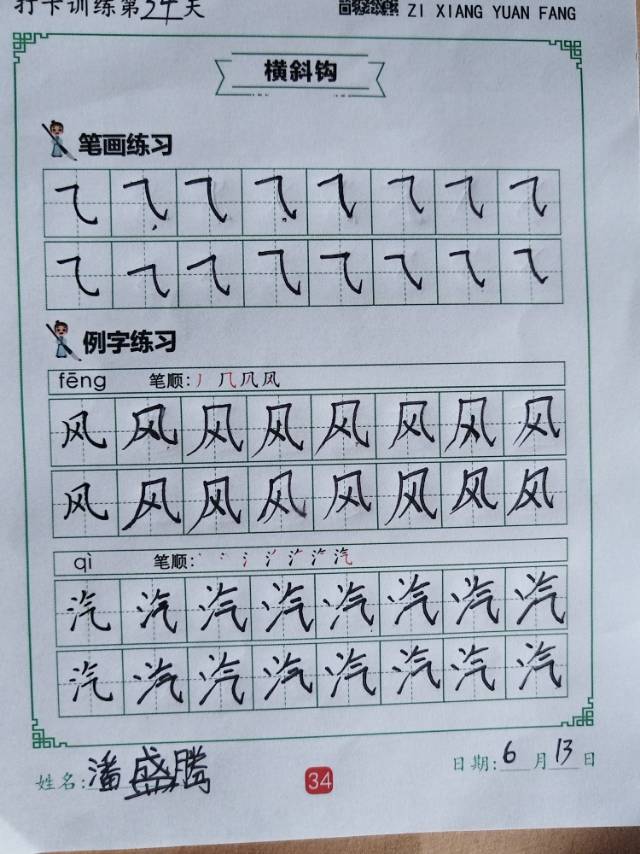 打卡训练第24天
ZI XIANG YUAN FANG
横斜钩
笔画练习
乁 乁 乁 乁 乁 乁 乁 乁
乁 乁 乁 乁 乁 乁 乁 乁
例字练习
fēng 笔顺: 丿 几 凡 风
风 风 风 风 风 风 风 风
风 风 风 风 风 风 风 风
qì 笔顺: 汽
汽 汽 汽 汽 汽 汽 汽 汽
汽 汽 汽 汽 汽 汽 汽 汽
姓名: 潘盛腾
34
日期: 6月13日